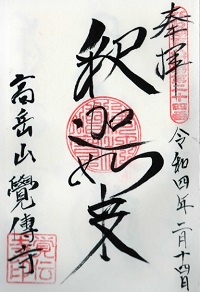 奉拝
令和四年二月十四日
釈迦如来
高岳山覺傳寺